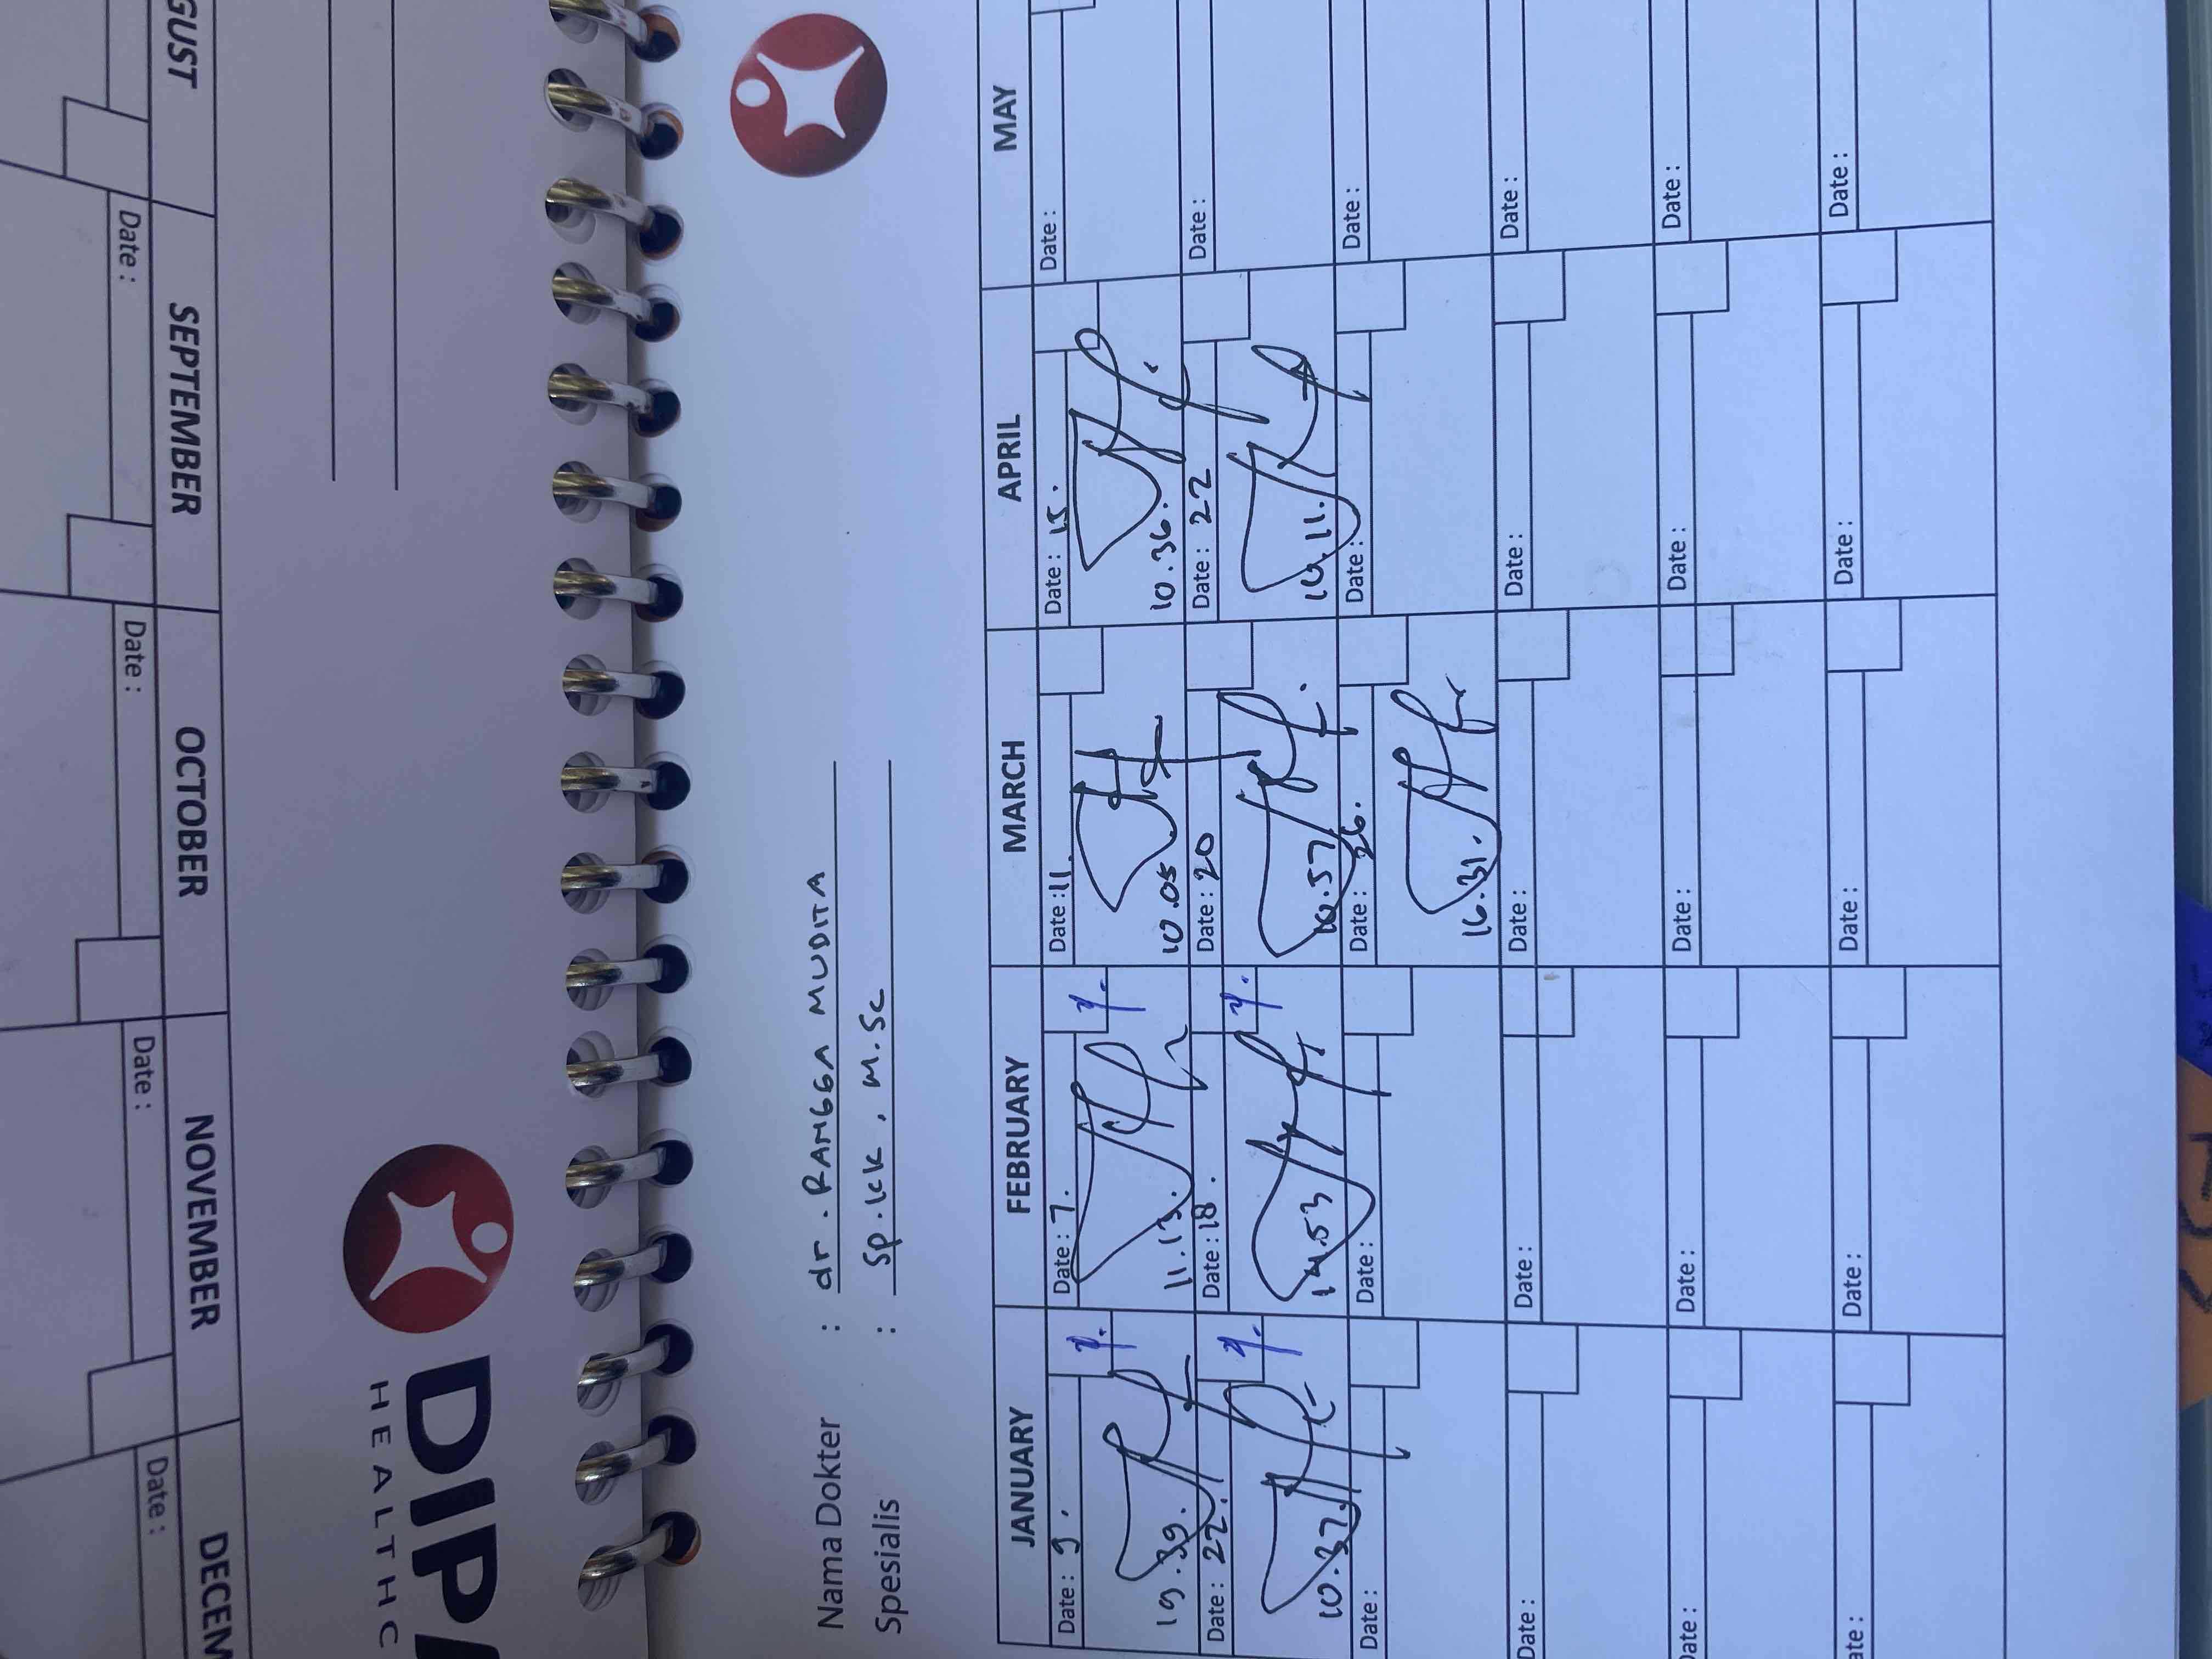 GUST
SEPTEMBER
OCTOBER
NOVEMBER
DECEM
Date :
Date :
Date :
Date :
DIPA
HEALTHC
Nama Dokter : dr. RANGGA MUDITA
Spesialis : Sp.KK, M.Sc
JANUARY FEBRUARY MARCH APRIL MAY
Date : 9. Date : 7. Date : 11. Date : 15. Date :
19.39. 11.13. 10.05 10.36.
Date : 22. Date : 18. Date : 20 Date : 22 Date :
10.37. 14.53 10.57 11.
Date : Date : Date : 26. Date : Date :
16.31.
Date : Date : Date : Date : Date :
Date : Date : Date : Date : Date :
ate : Date : Date : Date : Date :